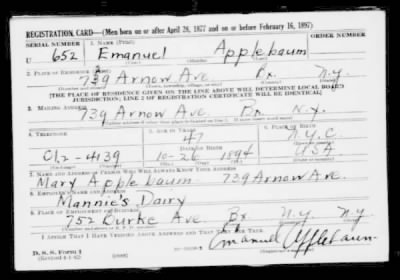 REGISTRATION CARD—(Men born on or after April 28, 1877 and on or before February 16, 1897)
SERIAL NUMBER 1. NAME (Print) ORDER NUMBER
U 652 Emanuel Applebaum
(First) (Middle) (Last)
2. PLACE OF RESIDENCE (Print)
739 Arnow Ave Bx. N.Y.
(Number and street) (Town, township, village, or city) (County) (State)
[THE PLACE OF RESIDENCE GIVEN ON THE LINE ABOVE WILL DETERMINE LOCAL BOARD
JURISDICTION; LINE 2 OF REGISTRATION CERTIFICATE WILL BE IDENTICAL]
3. MAILING ADDRESS
739 Arnow Ave Bx N.Y.
4. TELEPHONE 5. AGE IN YEARS 6. PLACE OF BIRTH
47 N.Y.C.
DATE OF BIRTH
OL2-4139 10-26 1894 USA
7. NAME AND ADDRESS OF PERSON WHO WILL ALWAYS KNOW YOUR ADDRESS
Mary Applebaum 739 Arnow Ave.
8. EMPLOYER'S NAME AND ADDRESS
Mannie's Dairy
9. PLACE OF EMPLOYMENT OR BUSINESS
752 Burke Ave Bx N.Y. NY
I AFFIRM THAT I HAVE VERIFIED ABOVE ANSWERS AND THAT THEY ARE TRUE.
D. S. S. Form 1
(Revised 4-1-42)
Emanuel Applebaum